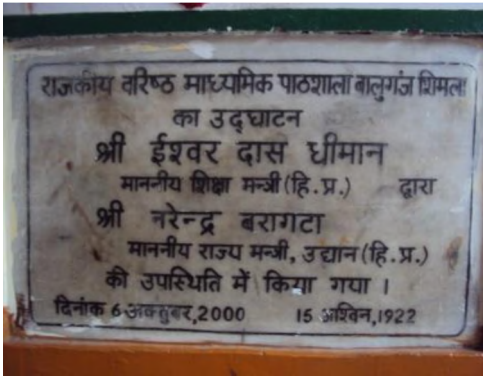 राजकीय वरिष्ठ माध्यमिक पाठशाला बालुगंज शिमला
का उद्घाटन
श्री ईश्वर दास धीमान
माननीय शिक्षा मन्त्री (हि.प्र.) द्वारा
श्री नरेन्द्र बरागटा
माननीय राज्य मन्त्री, उद्यान (हि.प्र.)
की उपस्थिति में किया गया ।
दिनांक 6 अक्तुबर,2000 15 आश्विन,1922